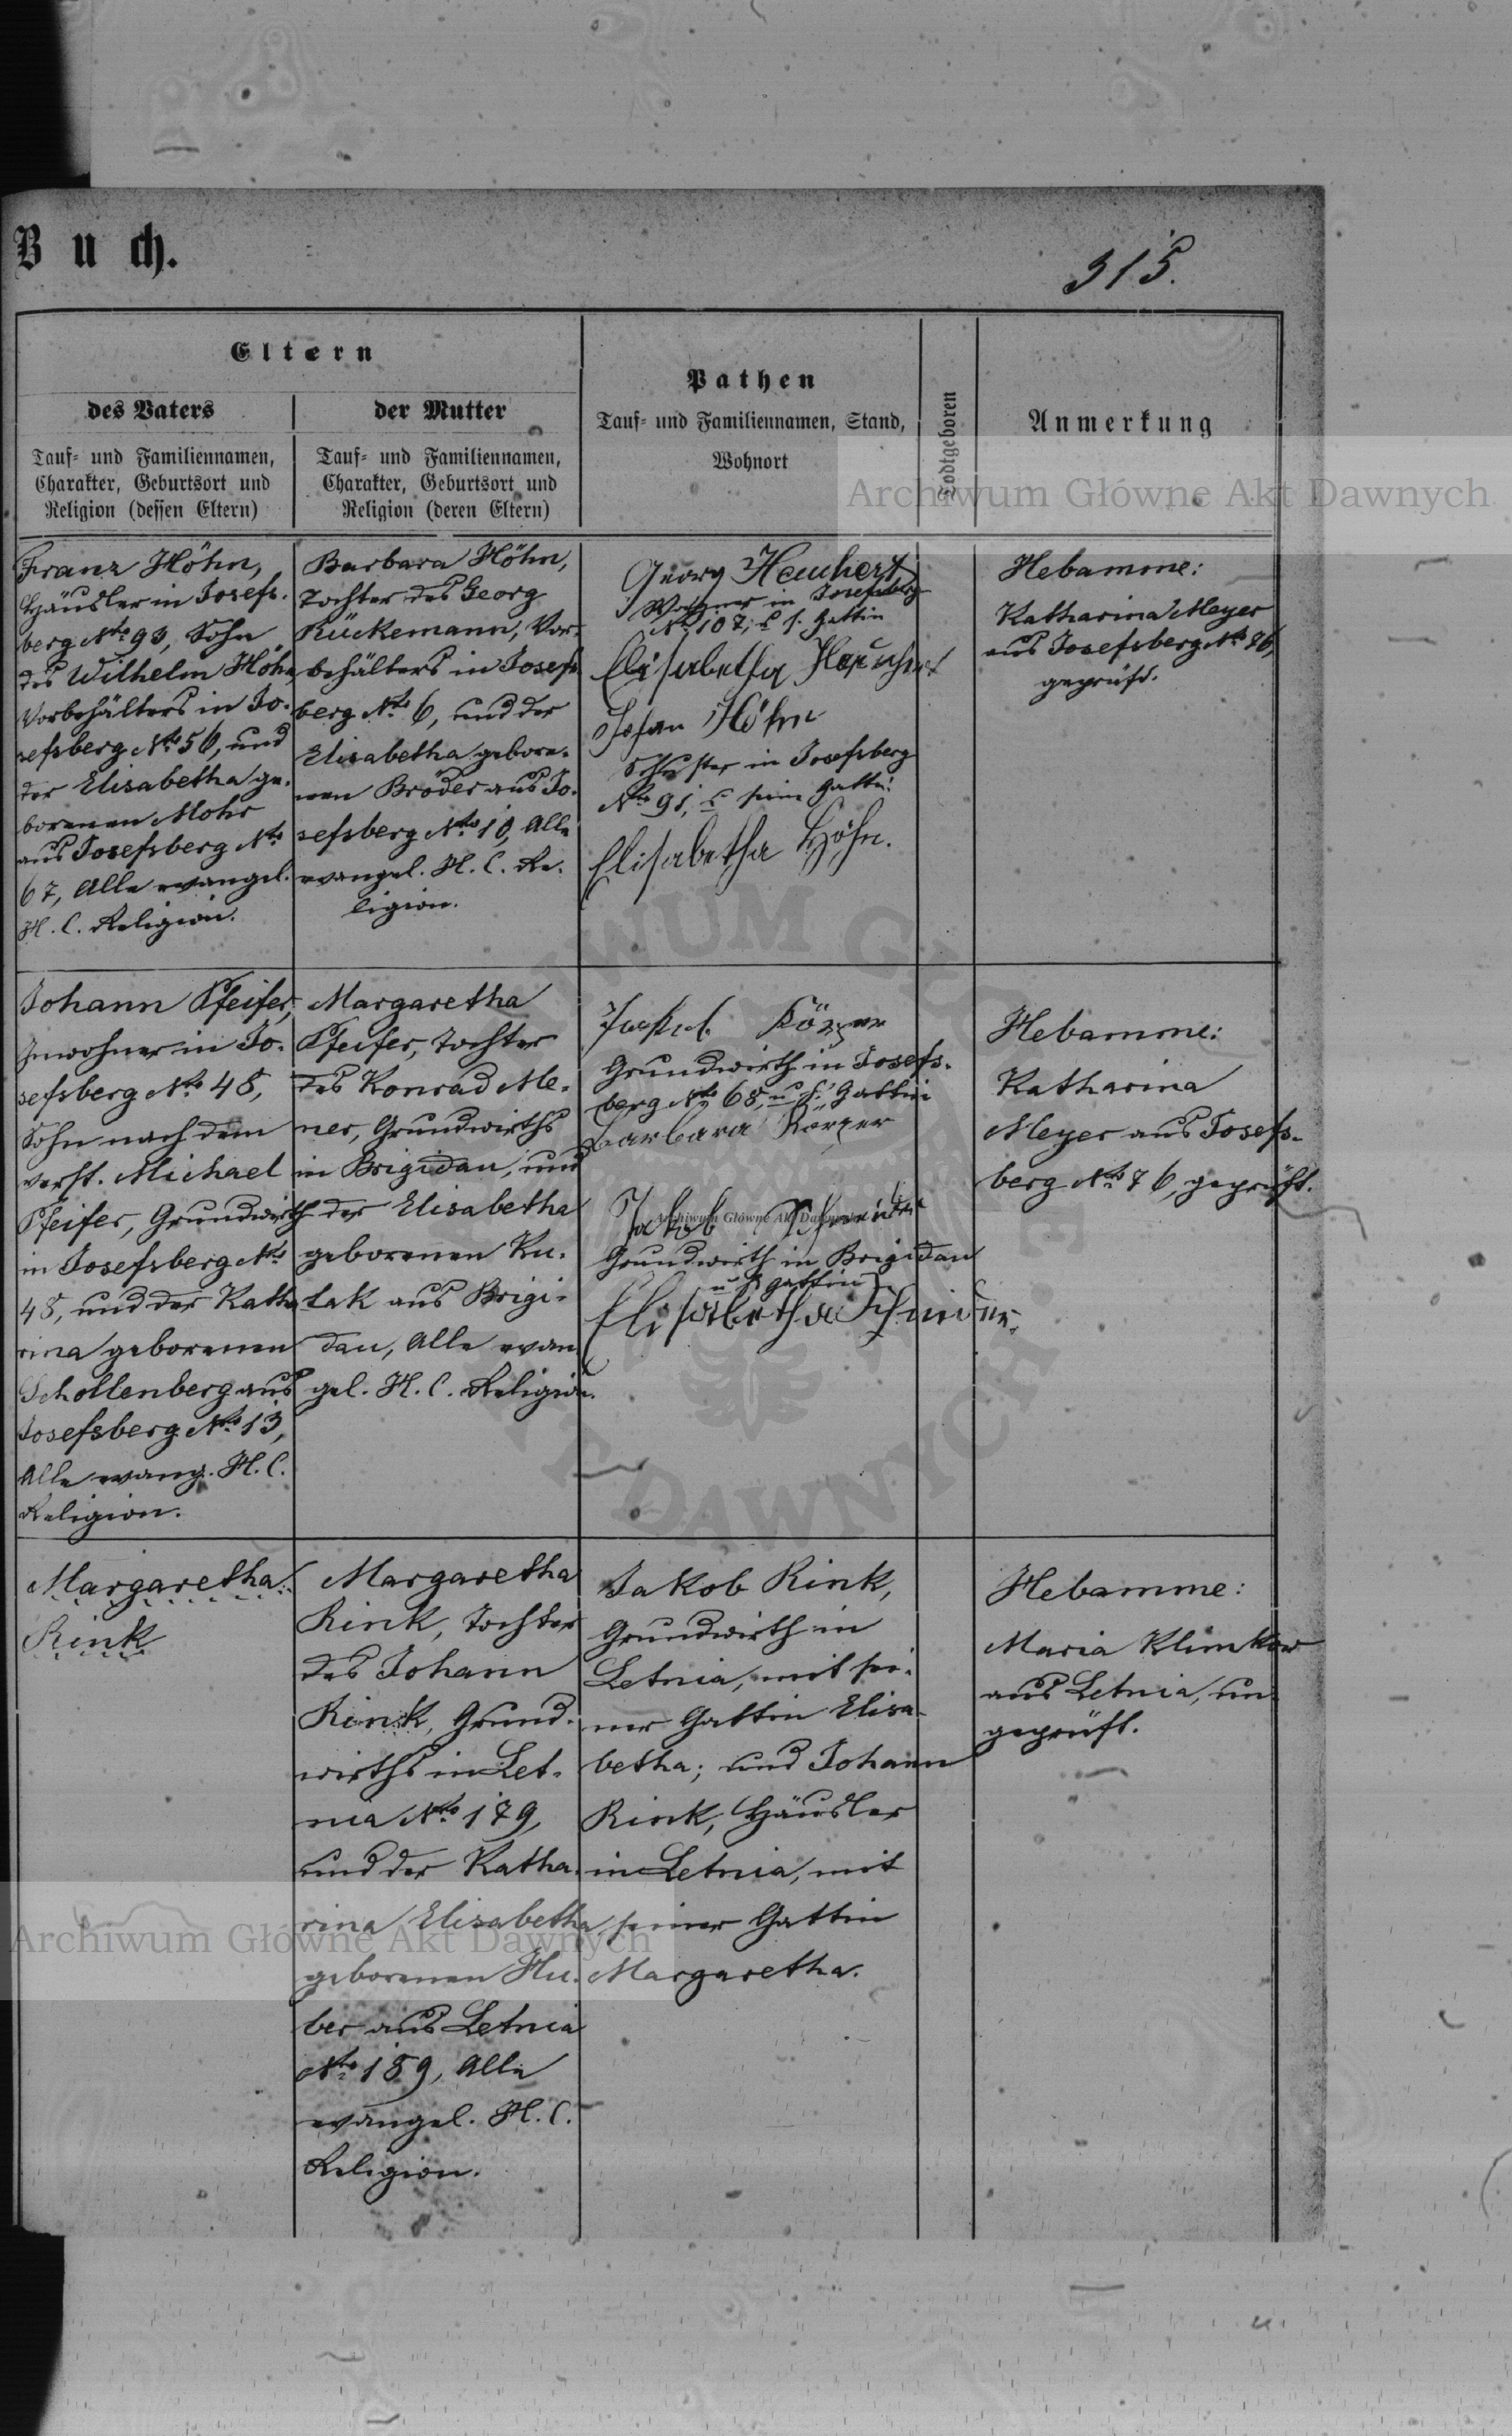 Buch.
315.
Eltern
des Vaters
Tauf- und Familiennamen,
Charakter, Geburtsort und
Religion (dessen Eltern)
der Mutter
Tauf- und Familiennamen,
Charakter, Geburtsort und
Religion (deren Eltern)
Pathen
Tauf- und Familiennamen, Stand,
Wohnort
Todtgeboren
Anmerkung
Archiwum Główne Akt Dawnych
Franz Höhn,
Häusler in Josefs-
berg Nto 93, Sohn
des Wilhelm Höhn
Vorbehälters in Jo-
sefsberg Nto 56, und
der Elisabetha ge-
borenen Mohr
aus Josefsberg Nto
67, Alle evangel.
H. C. Religion.
Barbara Höhn,
Tochter des Georg
Rückemann, Vor-
behälters in Josefs-
berg Nto 6, und der
Elisabetha gebore-
nen Bröder aus Jo-
sefsberg Nto 10, Alle
evangel. H. C. Re-
ligion.
Georg Heuchert
Wagner in Josefsberg
No 107, u s. Gattin
Elisabetha Heuchert
Johan Höhn
Schuster in Josefsberg
Nto 91, u seine Gattin
Elisabetha Höhn.
Hebamme:
Katharina Meyer
aus Josefsberg Nto 76,
geprüft.
Johann Pfeifer,
Inwohner in Jo-
sefsberg Nto 48,
Sohn nach dem
verst. Michael
Pfeifer, Grundwirth
in Josefsberg Nto
48, und der Katha
rina geborenen
Schollenberg aus
Josefsberg Nto 13,
Alle evang. H. C.
Religion.
Margaretha
Pfeifer, Tochter
des Konrad Me-
ner, Grundwirths
in Brigidau, und
der Elisabetha
geborenen Ku-
lak aus Brigi-
dau, Alle evan
gel. H. C. Religion.
Jakob Körper
Grundwirth in Josefs-
berg Nto 68, u s. Gattin
Barbara Körper
Jakob Schneider
Archiwum Główne Akt Dawnych
Grundwirth in Brigidau
u s. Gattin
Elisabetha Schneider.
Hebamme:
Katharina
Meyer aus Josefs-
berg Nto 76, geprüft.
Margaretha
Rink
Margaretha
Rink, Tochter
des Johann
Rink, Grund-
wirths in Let-
nia Nto 179,
und der Katha-
rina Elisabetha
geborenen Hu-
ber aus Letnia
Nto 189, Alle
evangel. H. C.
Religion.
Jakob Rink,
Grundwirth in
Letnia, mit sei-
ner Gattin Elisa-
betha; und Johann
Rink, Häusler
in Letnia, mit
seiner Gattin
Margaretha.
Hebamme:
Maria Klimkow
aus Letnia, un-
geprüft.
Archiwum Główne Akt Dawnych